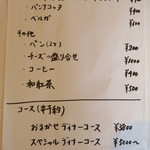 ・パンナコッタ ¥400
・ベルガ ¥400
その他
・パン(2ヶ) ¥200
・チーズ盛り合せ ¥1000〜
・コーヒー ¥400
・和紅茶 ¥500
コース(要予約)
おまかせディナーコース ¥3800
スペシャルディナーコース ¥5000〜